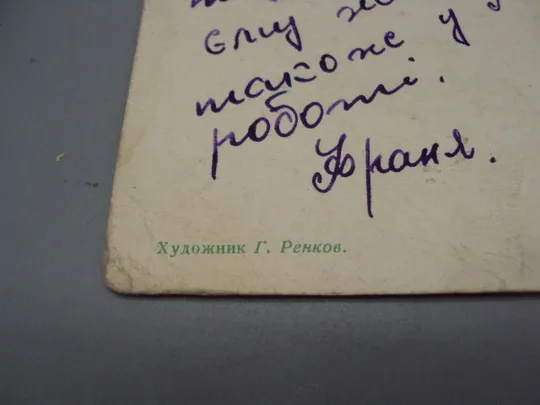 єму
також у
роботі.
Франя.
Художник Г. Ренков.